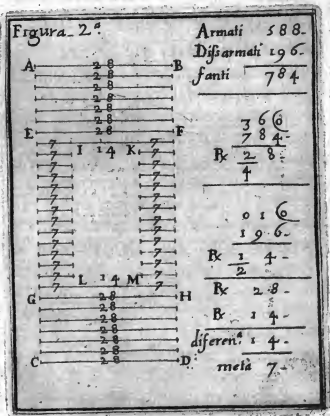 Figura 2ª
A 28 B
28
28
28
28
28
E 28 F
7 7
7 I 14 K 7
7 7
7 7
7 7
7 7
7 7
7 7
7 7
7 7
7 7
7 7
7 L 14 M 7
7 7
G 28 H
28
28
28
28
28
C 28 D
Armati 588-
Disarmati 196-
fanti 784
366
784-
R× 28-
4
016
196-
R× 14-
2
R× 28-
R× 14-
diferenª 14-
metà 7-